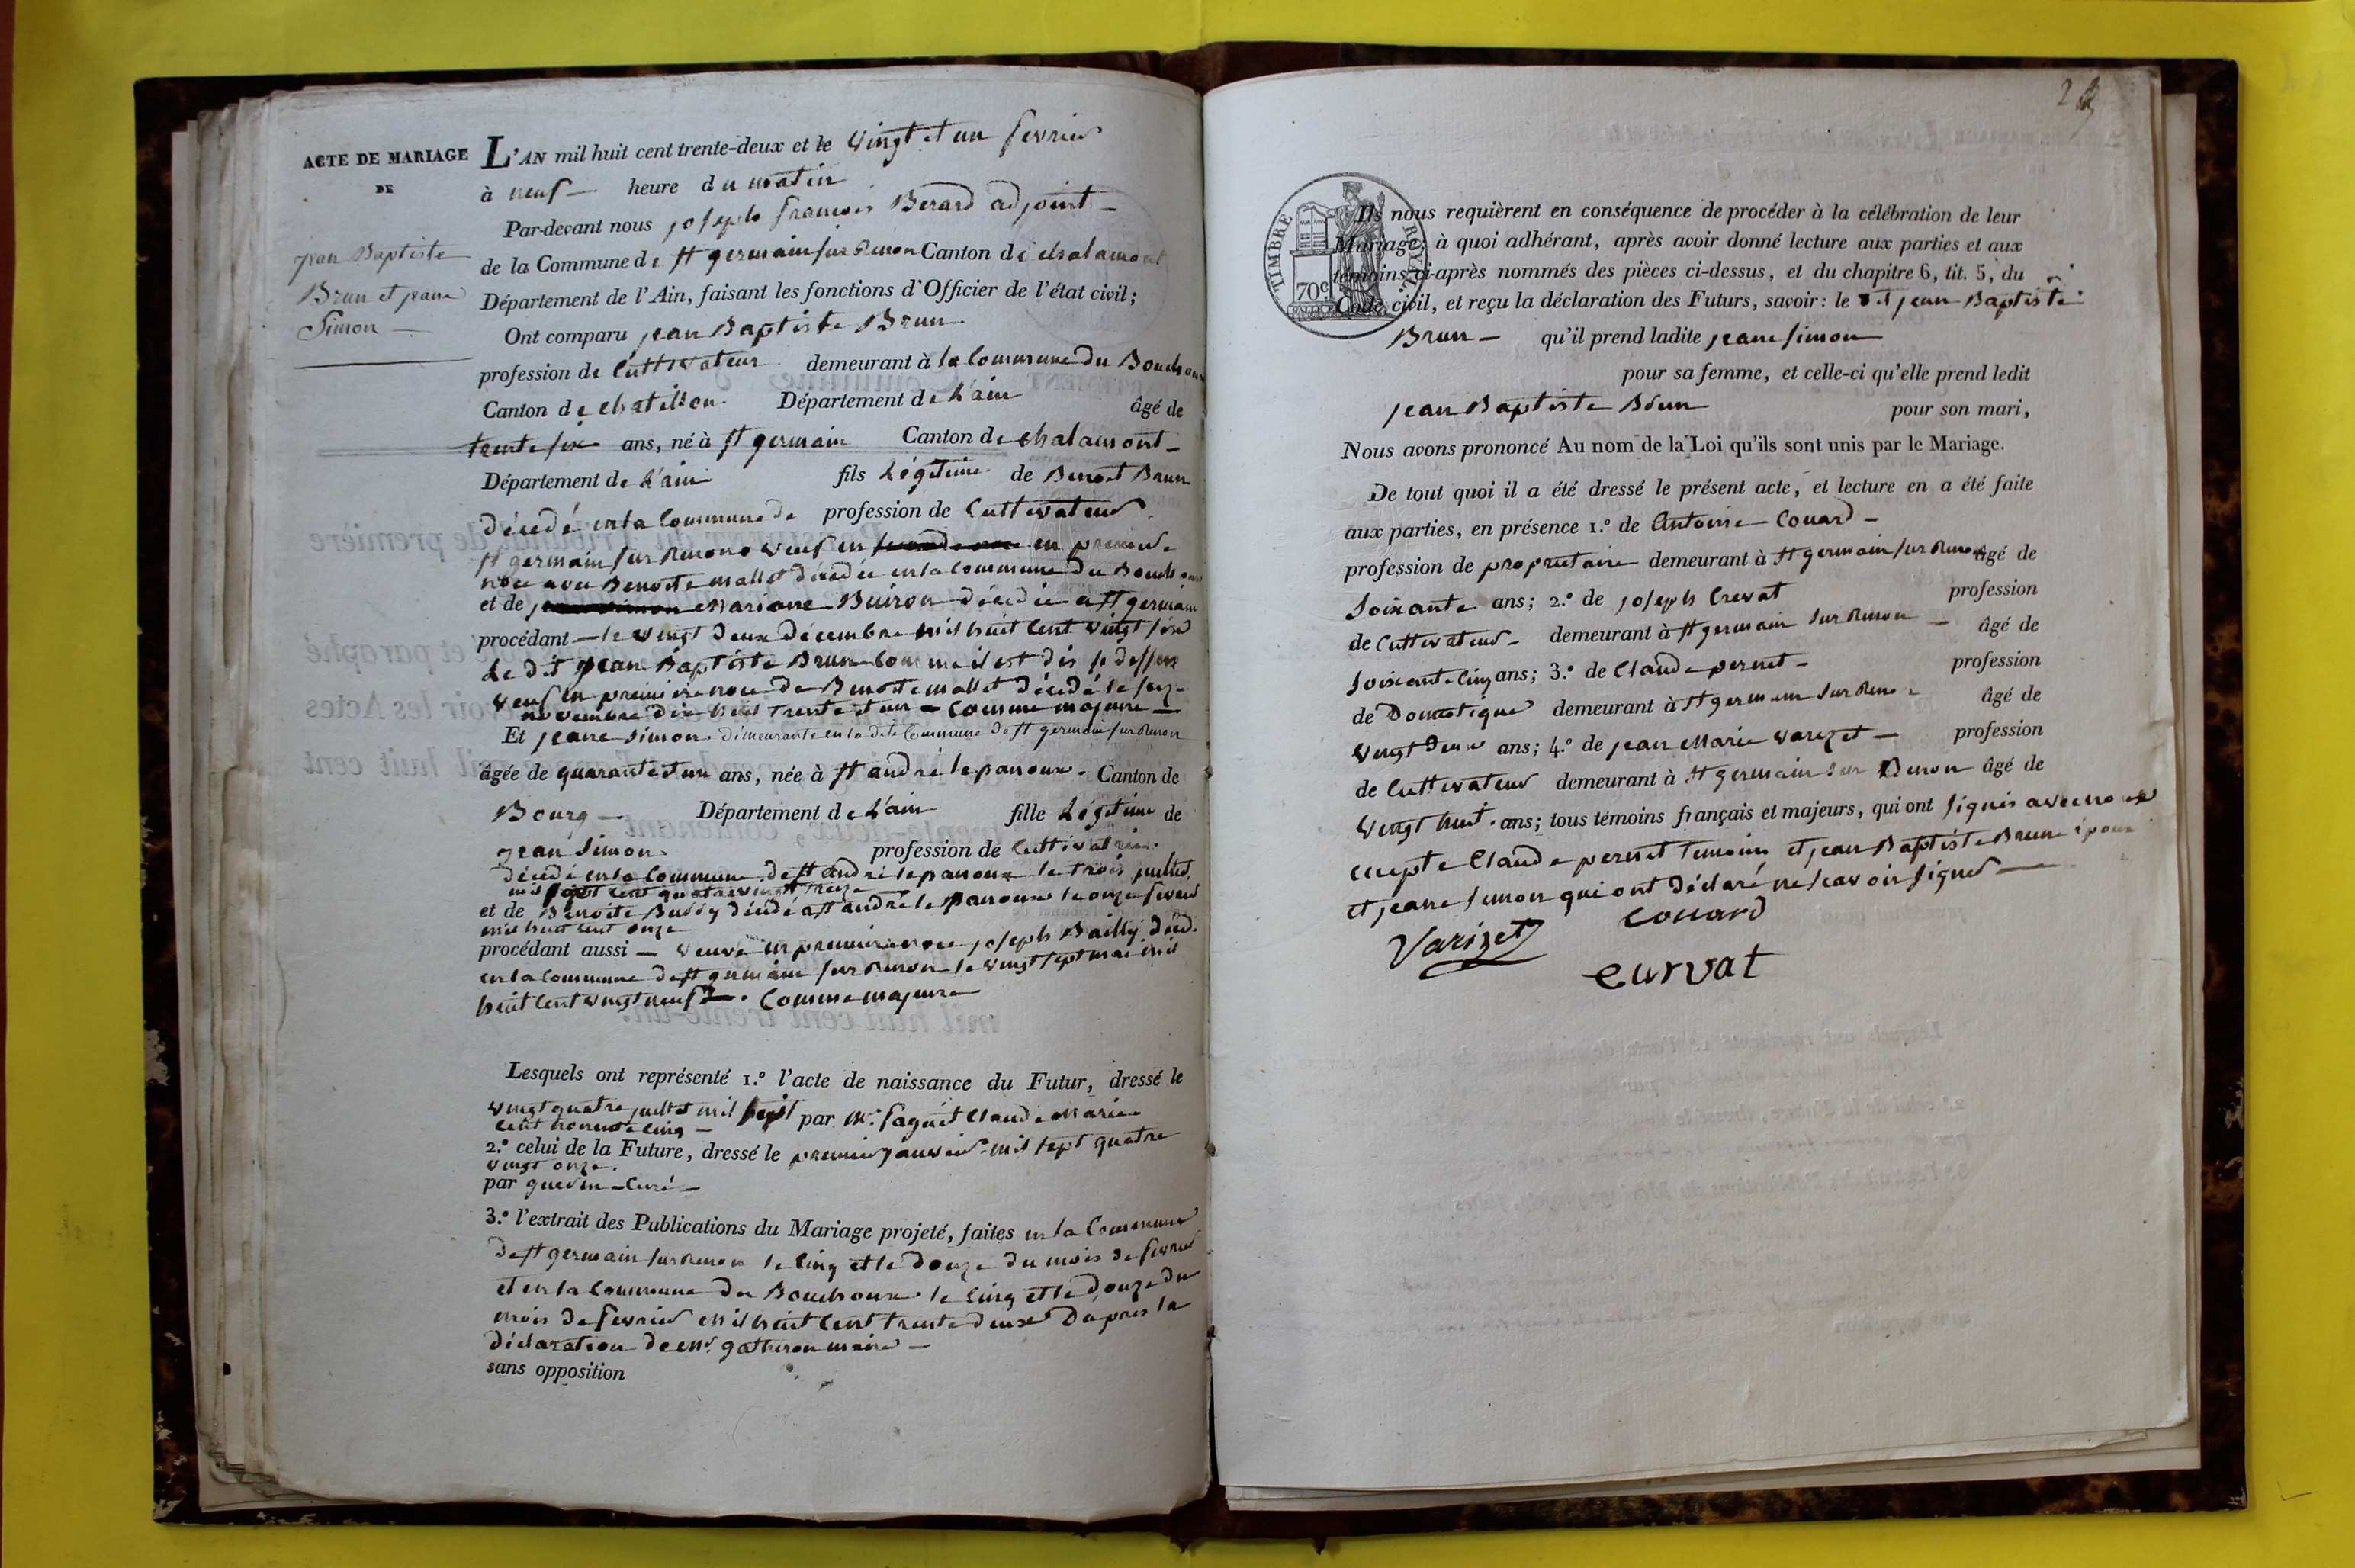 ACTE DE MARIAGE
DE
jean Baptiste
Brun et jeane
Simon
L'AN mil huit cent trente-deux et le vingt et un fevrier
à neuf heure du matin
Par-devant nous joseph françois Berard adjoint
de la Commune de st germain sur Renon Canton de chalamont
Département de l'Ain, faisant les fonctions d'Officier de l'état civil;
Ont comparu jean Baptiste Brun
profession de Cultivateur demeurant à la Commune du Bouchoux
Canton de chatillon Département de L'ain âgé de
trente six ans, né à st germain Canton de chalamont
Département de L'ain fils Légitime de Benoit Brun
décedé en la Commune de profession de Cultivateur
st germain sur Renon veuf en en premiere
noce avec Benoite mallet décedée en la Commune du Bouchoux
et de Mariane Buiron décedée a st germain
procédant le vingt deux décembre mil huit Cent vingt six
Le dit jean Baptiste Brun Comme il est dis si dessus
veuf en premiere noce de Benoite mallet décedé le seize
novembre dix huit trente et un Comme majeure
Et jeane Simon demeurante en la dite Commune de st germain sur Renon
âgée de quarante et un ans, née à st andré le panoux Canton de
Bourg Département de L'ain fille Légitime de
jean Simon profession de Cultivateur
décedé en la Commune de st andré le panoux le trois juillet
mil sept cent quatre vingt treize
et de Benoite Buddy décédé a st andré le panoux le onze fevrier
mil huit cent onze
procédant aussi veuve en premiere noce joseph Bailly déced.
en la Commune de st germain sur Renon le vingt sept mai mil
huit Cent vingt neuf Comme majeure
Lesquels ont représenté 1.° l'acte de naissance du Futur, dressé le
vingt quatre juillet mil sept par Mr. faguet Claude Marie
Cent nonente Cinq
2.° celui de la Future, dressé le premier janvier mil sept quatre
vingt onze
par guerin Curé
3.° l'extrait des Publications du Mariage projeté, faites en la Commune
de st germain sur Renon le Cinq et le douze du mois de fevrier
et en la Commune du Bouchoux le Cinq et le douze du
mois de fevrier Mil huit Cent trente deux Dapres la
déclaration de Mr. gatheron maire
sans opposition
2
TIMBRE ROYAL
70c
Ils nous requièrent en conséquence de procéder à la célébration de leur
Mariage; à quoi adhérant, après avoir donné lecture aux parties et aux
témoins ci-après nommés des pièces ci-dessus, et du chapitre 6, tit. 5, du
Code civil, et reçu la déclaration des Futurs, savoir: le dit jean Baptiste
Brun qu'il prend ladite jeane Simon
pour sa femme, et celle-ci qu'elle prend ledit
jean Baptiste Brun pour son mari,
Nous avons prononcé Au nom de la Loi qu'ils sont unis par le Mariage.
De tout quoi il a été dressé le présent acte, et lecture en a été faite
aux parties, en présence 1.° de Antoine Couard
profession de propriétaire demeurant à st germain sur Renon âgé de
Soixante ans; 2.° de joseph Crevat profession
de Cultivateur demeurant à st germain sur Renon âgé de
Soixante Cinq ans; 3.° de Claude pernet profession
de Domestique demeurant à st germain sur Renon âgé de
vingt deux ans; 4.° de jean Marie varizet profession
de Cultivateur demeurant à st germain sur Renon âgé de
vingt huit ans; tous témoins français et majeurs, qui ont signés avec nous
excepte Claude pernet temoins et jean Baptiste Brun époux
et jeane Simon qui ont déclaré ne savoir signer
Varizet
Couard
Curvat